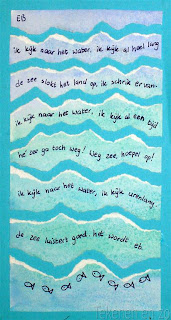 EB
ik kijk naar het water, ik kijk al heel lang
de zee slokt het land op, ik schrik ervan.
ik kijk naar het water, ik kijk al een tijd
hé zee ga toch weg! Weg zee, hoepel op!
ik kijk naar het water, ik kijk urenlang.
de zee luistert goed. het wordt eb.